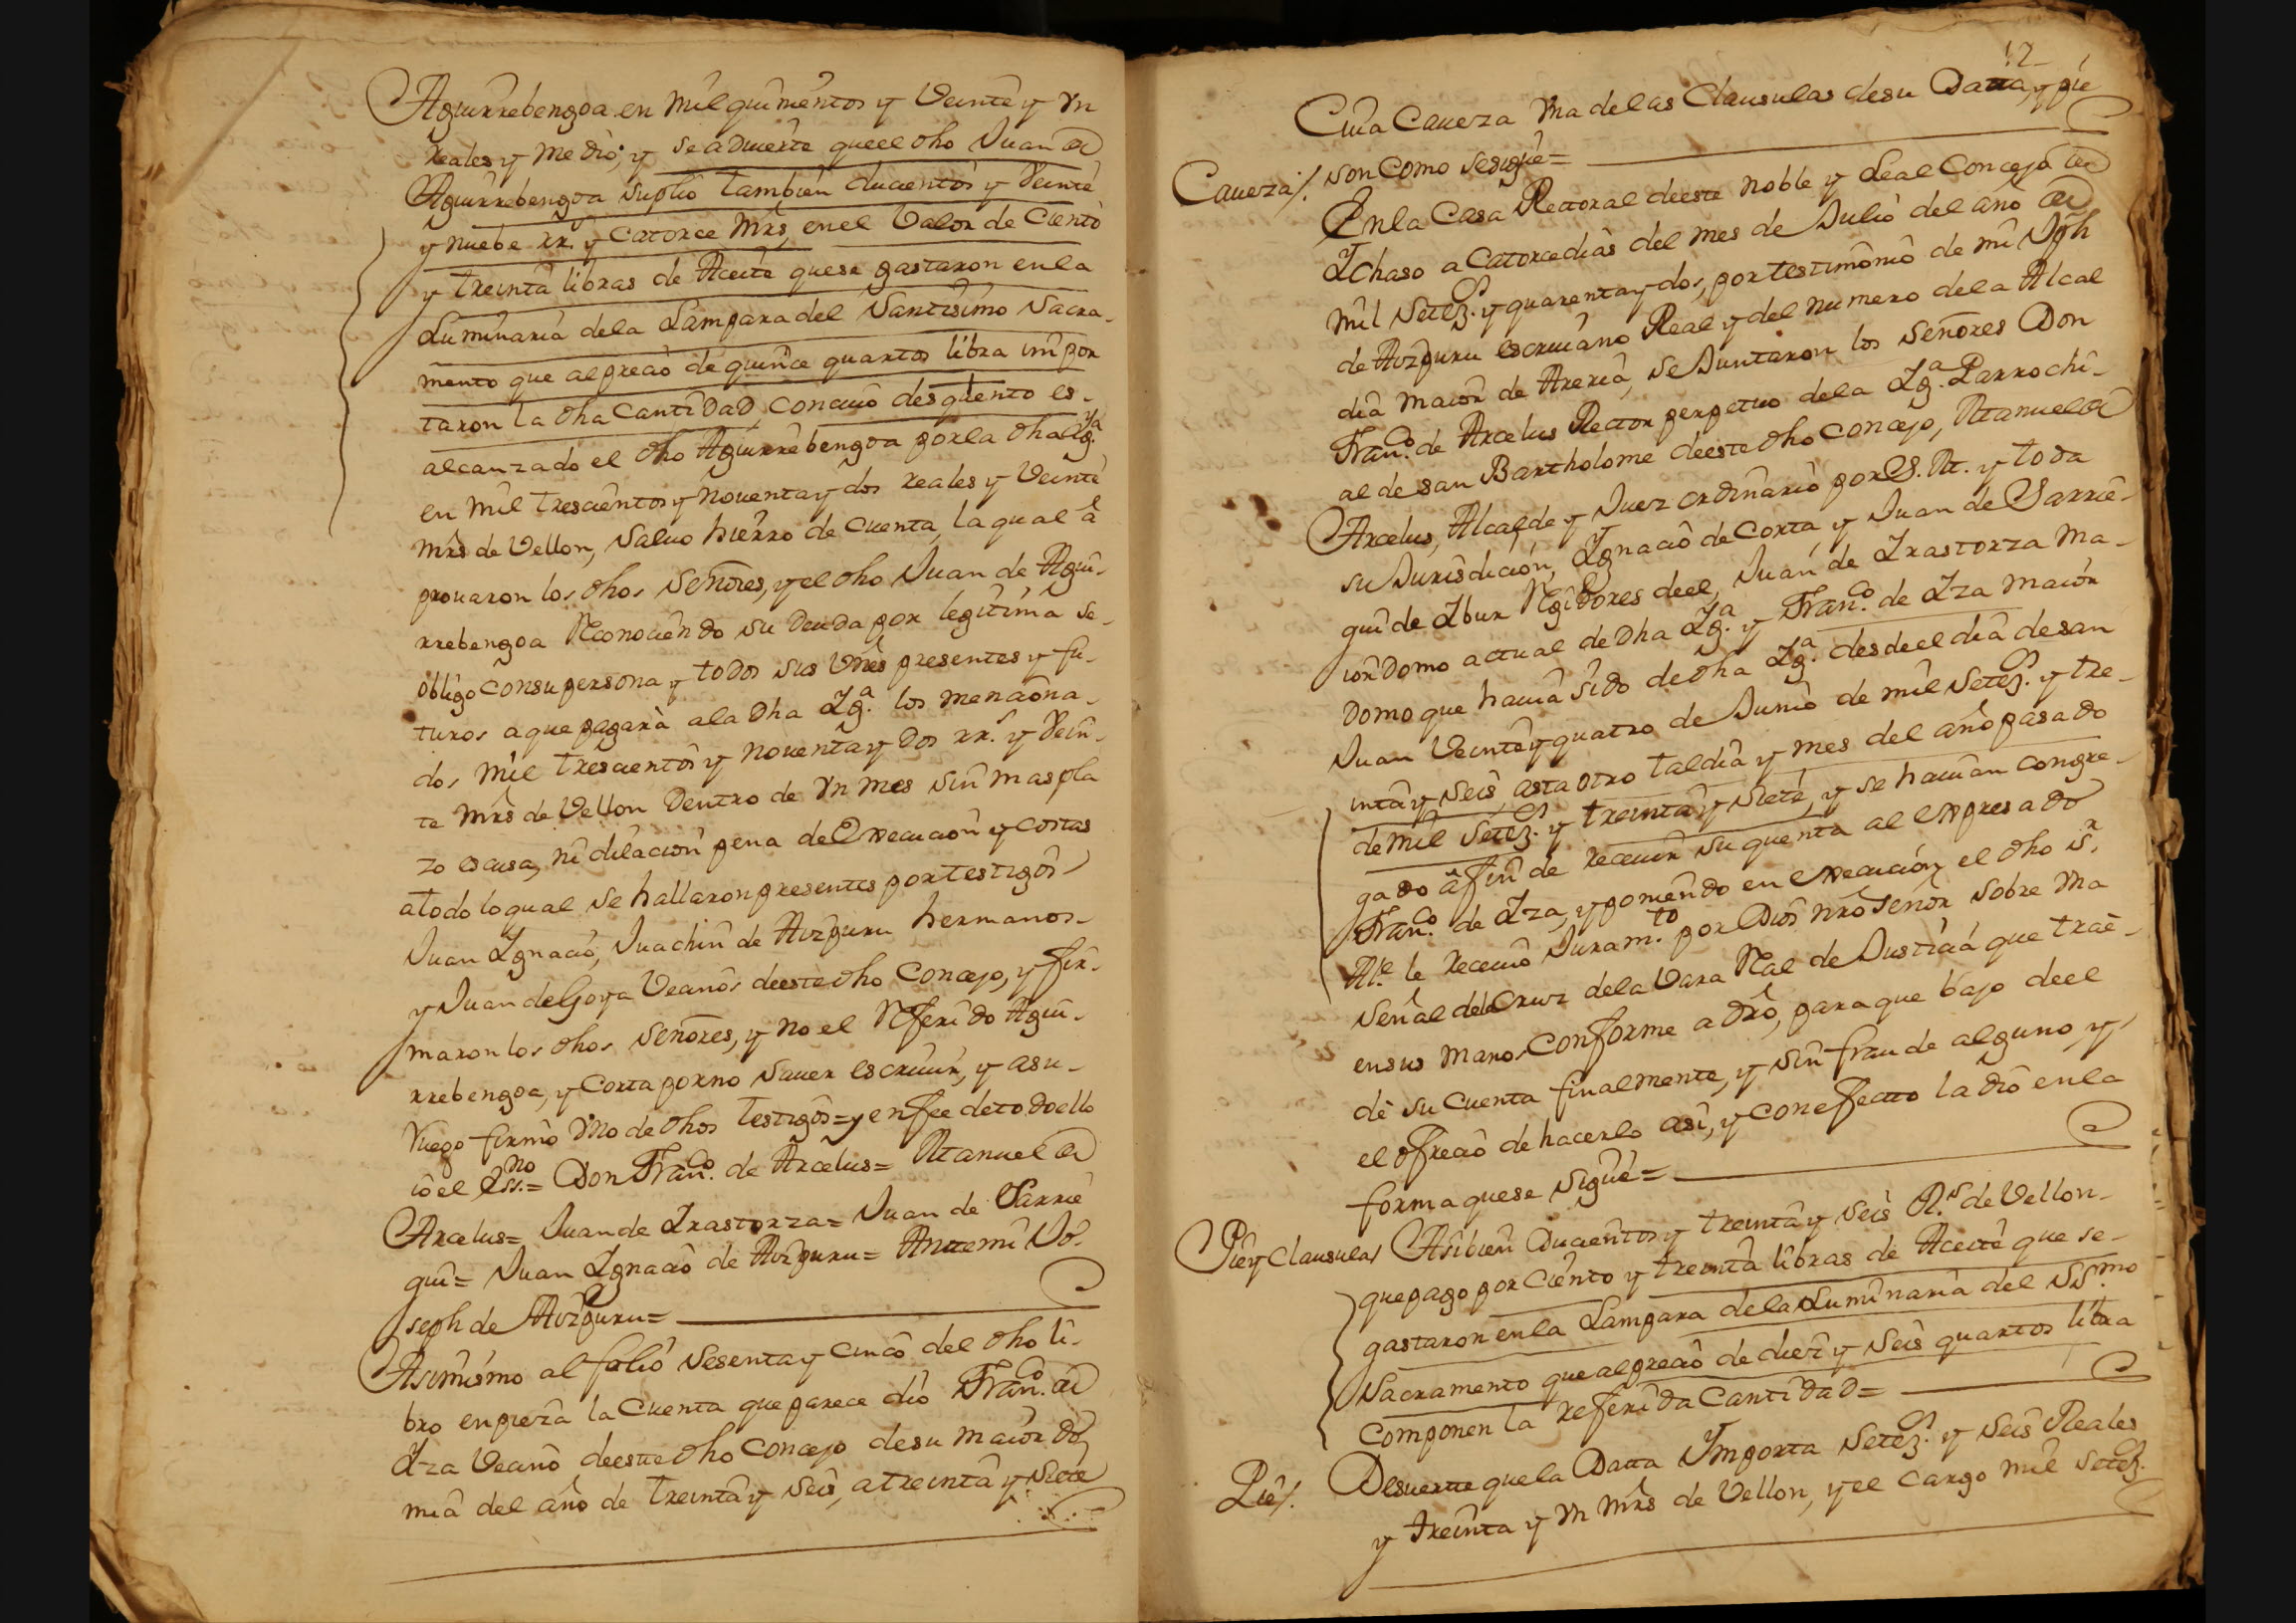 Aguirrebengoa en mil quinientos y Veinte y Vn
reales y medio; y se aduierte queel dho Juan de
Aguirrebengoa suplio tambien ducientos y veinte
y nuebe rr.s y Catorce Mrs, en el Valor de Ciento
y treinta libras de Aceite quese gastaron en la
Luminaria dela Lampara del Santisimo Sacra-
mento que al precio de quince quartos libra impor
taron la dha Cantidad, con cuio desquento es-
alcanzado el dho Aguirrebengoa por la dha Ygª
en mil trescientos y nouenta y dos reales y Veinte
mrs de Vellon, saluo hierro de cuenta, la qual a
prouaron los dhos señores, y el dho Juan de Agui-
rrebengoa Reconociendo su deuda por legitima se
obligo con su persona y todos sus Vnes presentes y fu-
turos a que pagara ala Dha Yg.ª los menciona-
dos mil trescientos y nouenta y dos rr.s y Vein-
te mrs de Vellon dentro de Vn mes sin mas pla
zo escusa, ni dilacion pena de Execucion y costas
atodo lo qual se hallaron presentes por testigos
Juan Ygnacio, Juachin de Aizpuru hermanos-
y Juan de Goya Vecinos deeste dho Concejo, y fir-
maron los dhos señores, y no el Referido Agui-
rrebengoa, y Corta por no sauer escriuir, y asu-
ruego firmo Vno de dhos testigos= y en fee de todo ello
io el Ess.no= Don Fran.co de Arcelus= Manuel de
Arcelus= Juan de Yrastorza= Juan de Sarrie
gui= Juan Ygnacio de Aizpuru= Antte mi Jo-
seph de Aizpuru=
Asimismo al folio sesenta y cinco del dho li-
bro enpieza la Cuenta que parece dio Fran.co de
Yza Vecino deeste dho Concejo desu maiordo
mia del año de treinta y seis, a treinta y siete
12
Cuia Caueza Vna delas Clausulas desu Datta, y pie
son como se sigue=
Caueza/. En la Casa Rectoral deeste Noble y Leal Concejo de
Ychaso a Catorce dias del mes de Julio del año de
mil Setez.s y quarenta y dos, por testimonio de mi Jph
de Aizpuru escriuano Real y del numero dela Alcal
dia maior de Areria, se Juntaron los señores Don
Fran.co de Arcelus Rector perpetuo dela Yg.ª Parrochi-
al de san Bartholome deeste dho Concejo, Manuel de
Arcelus, Alcalde y Juez ordinario por S. M. y toda
su Jurisdicion, Ygnacio de Corta y Juan de Sarrie-
gui de Ybur Regidores deel, Juan de Yrastorza Ma-
iordomo actual de Dha Yg.ª y Fran.co de Yza maior
domo que hauia sido de dha Yg.ª desde el dia de san
Juan Veinte y quatro de Junio de mil Setez.s y tre-
inta y seis, asta otro tal dia y mes del año pasado
de mil Setez.s y treinta y siete, y se hauian congre-
gado a fin de receuir su quenta al expresado
Fran.co de Yza, y poniendo en execucion el dho s.r
Al.e le receuio Juram.to por Dios nro señor sobre Vna
señal dela Cruz dela Vara Real de Justicia que trae-
en sus manos Conforme a dro, para que bajo deel
de su Cuenta finalmente, y sin fraude alguno, y
el ofrecio de hacerlo asi, y con efecto la dio en la
forma quese sigue=
Pie y Clausulas Asi bien Ducientos y treinta y seis R.s de Vellon-
que pago por Ciento y treinta libras de Aceite que se-
gastaron en la Lampara dela Luminaria del SS.mo
Sacramento que al precio de diez y seis quartos libra
componen la referida Cantidad=
Pie/. Desuerte que la Datta Ymporta Setez.s y seis Reales
y treinta y Vn mrs de Vellon, y el cargo mil setez.s